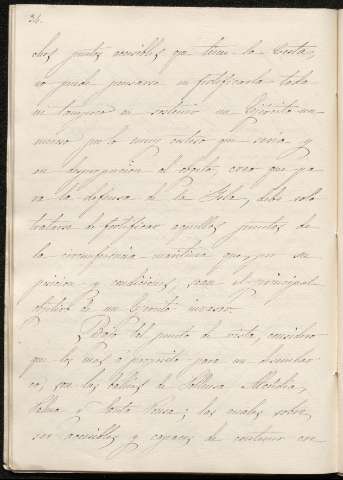 36.
otros puntos accesibles que tiene la Costa,
no puede pensarse en fortificarla toda
ni tampoco en sostener un Ejército nu-
meroso por lo muy costoso que seria y
en desproporcion al objeto, creo que pa-
ra la defensa de la Isla, debe solo
tratarse de fortificar aquellos puntos de
la circunferencia maritima que, por su
posicion y condiciones, sean el principal
objetivo de un Ejercito invasor.
Bajo tal punto de vista, considero
que los mas á propósito para un desembar-
co, son las bahias de Pollensa, Alcudia,
Palma y Santa Ponsa; las cuales sobre
ser accesibles y capaces de contener con-